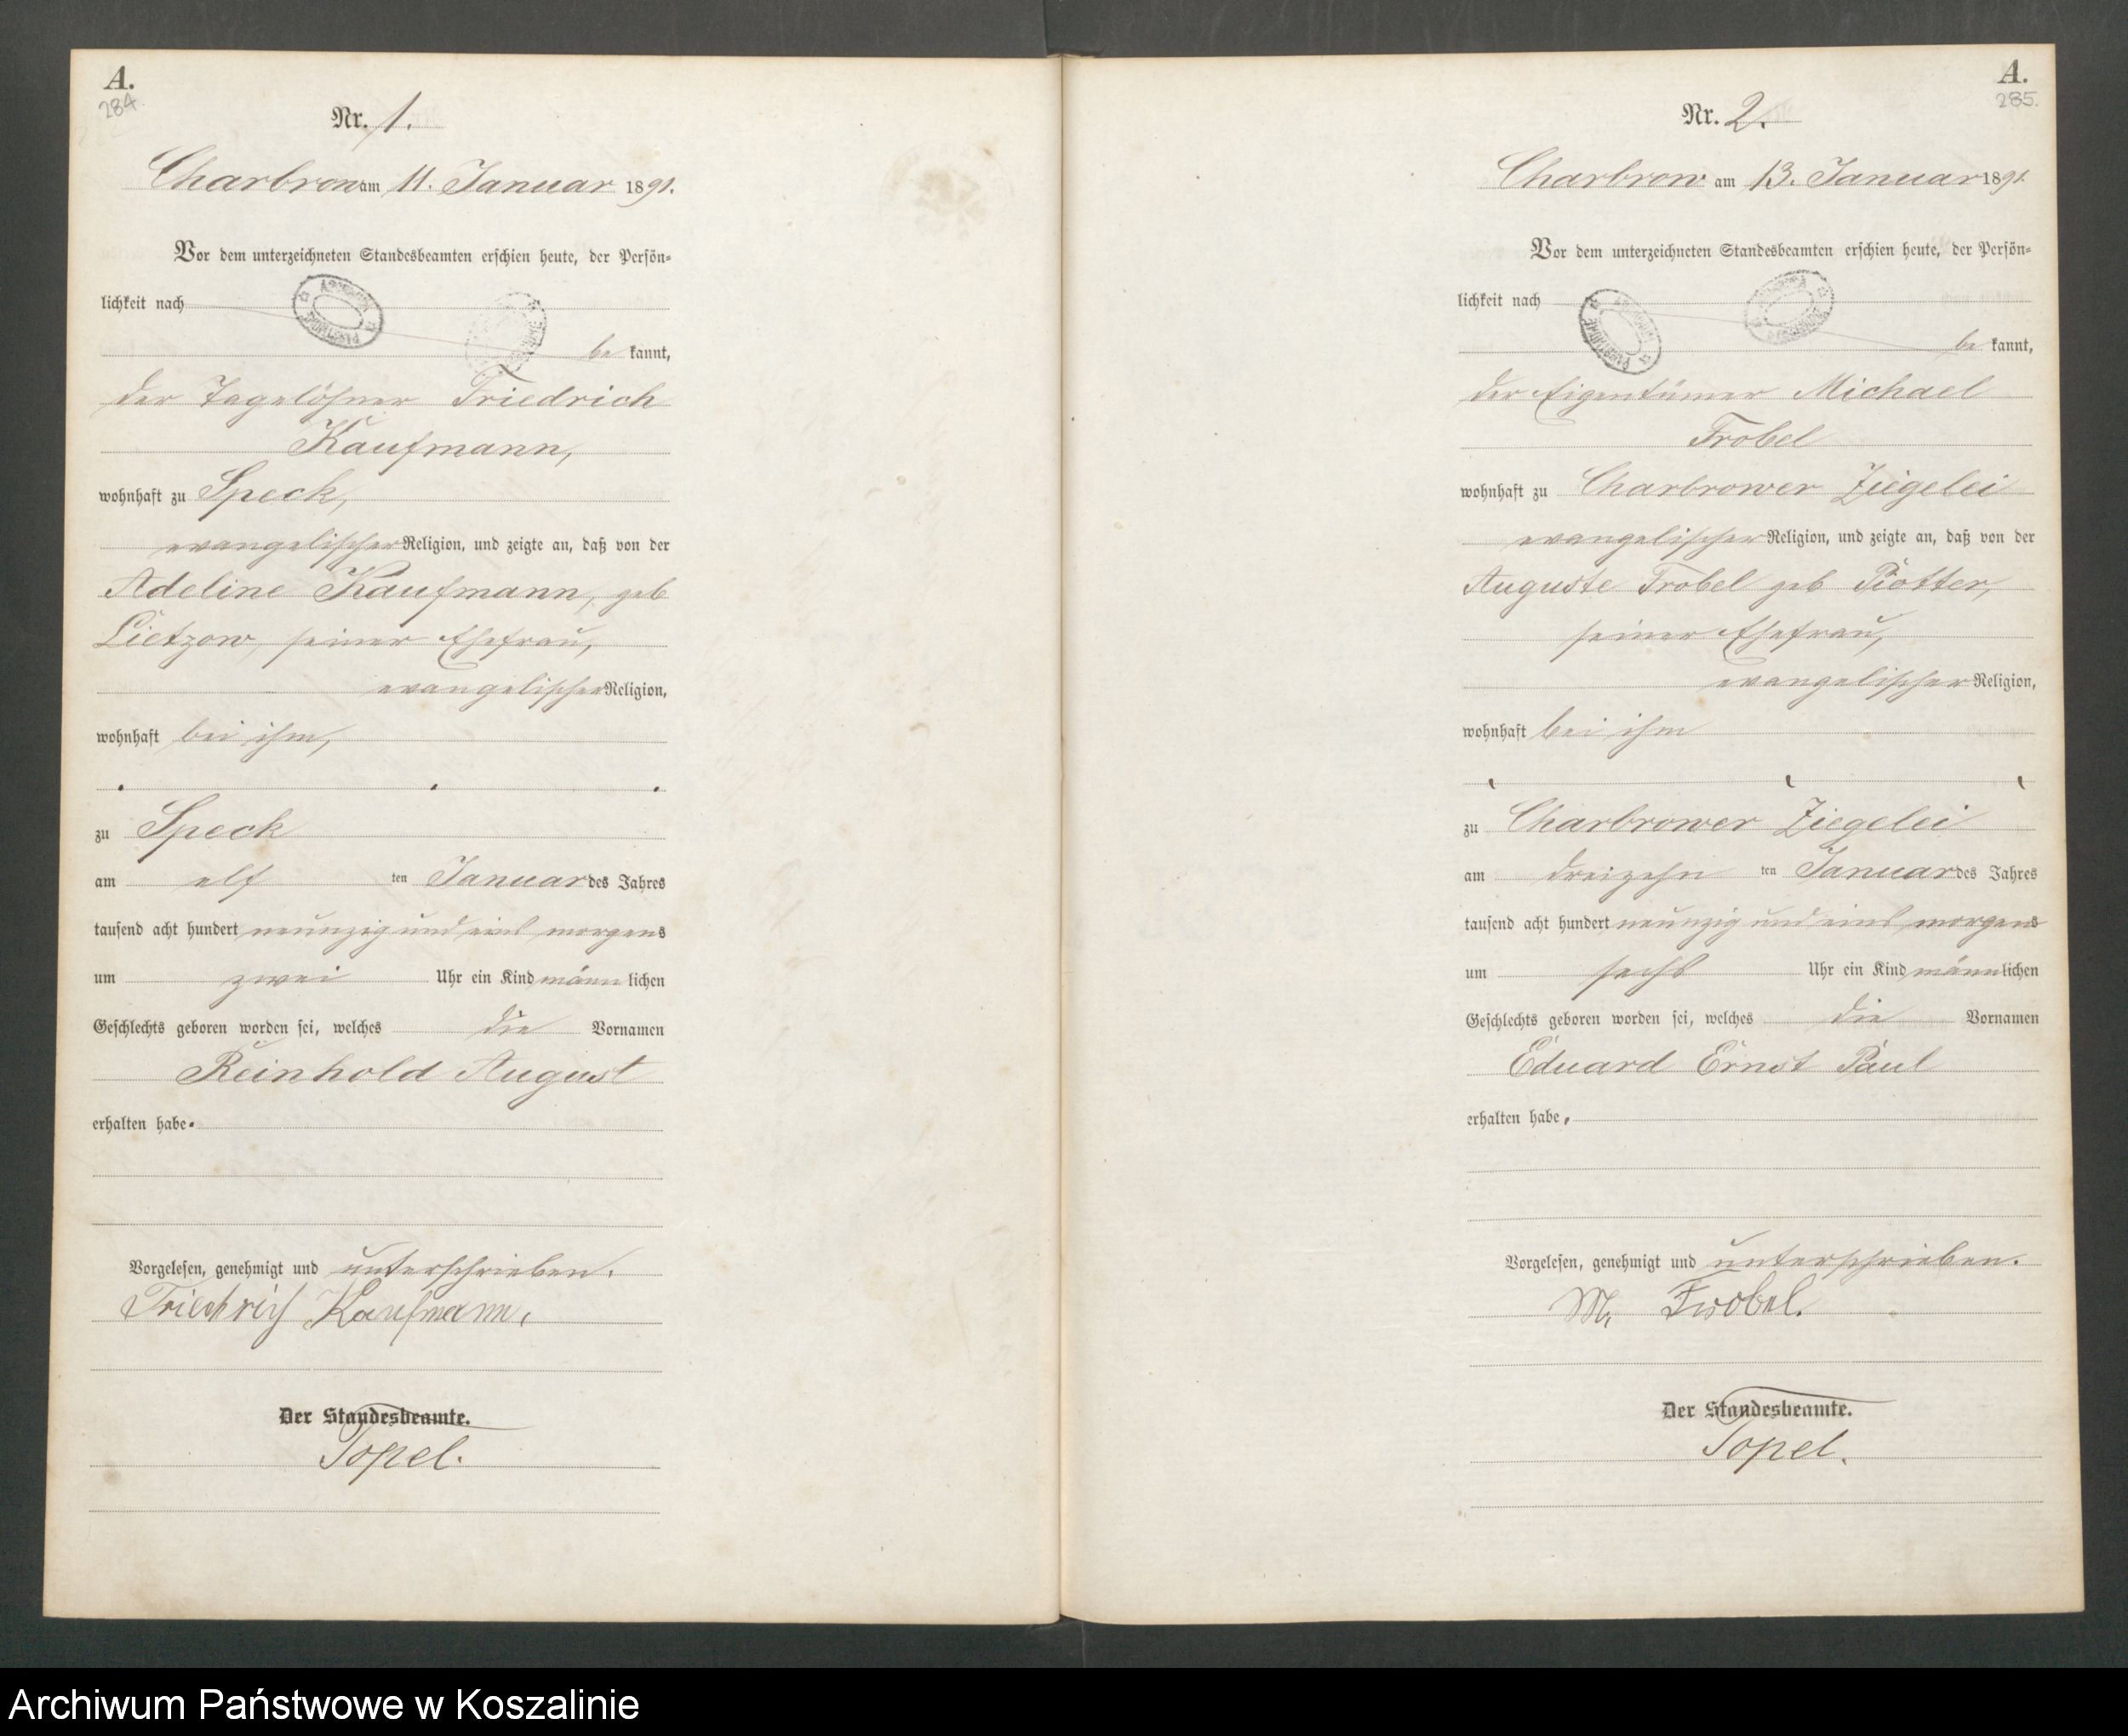 A.
284.
Nr. 1.
Charbrow am 11. Januar 1891.
Vor dem unterzeichneten Standesbeamten erschien heute, der Persön-
lichkeit nach
be kannt,
der Tagelöhner Friedrich
Kaufmann,
wohnhaft zu Speck,
evangelischer Religion, und zeigte an, daß von der
Adeline Kaufmann, geb
Lietzow, seiner Ehefrau,
evangelischer Religion,
wohnhaft bei ihm,
zu Speck
am elf ten Januar des Jahres
tausend acht hundert neunzig und eins morgens
um zwei Uhr ein Kind männ lichen
Geschlechts geboren worden sei, welches die Vornamen
Reinhold August
erhalten habe.
Vorgelesen, genehmigt und unterschrieben.
Friedrich Kaufmann.
Der Standesbeamte.
Topel.
A.
285.
Nr. 2.
Charbrow am 13. Januar 1891.
Vor dem unterzeichneten Standesbeamten erschien heute, der Persön-
lichkeit nach
be kannt,
der Eigentümer Michael
Frobel
wohnhaft zu Charbrower Ziegelei
evangelischer Religion, und zeigte an, daß von der
Auguste Frobel geb Piotter,
seiner Ehefrau,
evangelischer Religion,
wohnhaft bei ihm
zu Charbrower Ziegelei
am dreizehn ten Januar des Jahres
tausend acht hundert neunzig und eins morgens
um sechs Uhr ein Kind männ lichen
Geschlechts geboren worden sei, welches die Vornamen
Eduard Ernst Paul
erhalten habe.
Vorgelesen, genehmigt und unterschrieben.
M. Frobel.
Der Standesbeamte.
Topel.
Archiwum Państwowe w Koszalinie